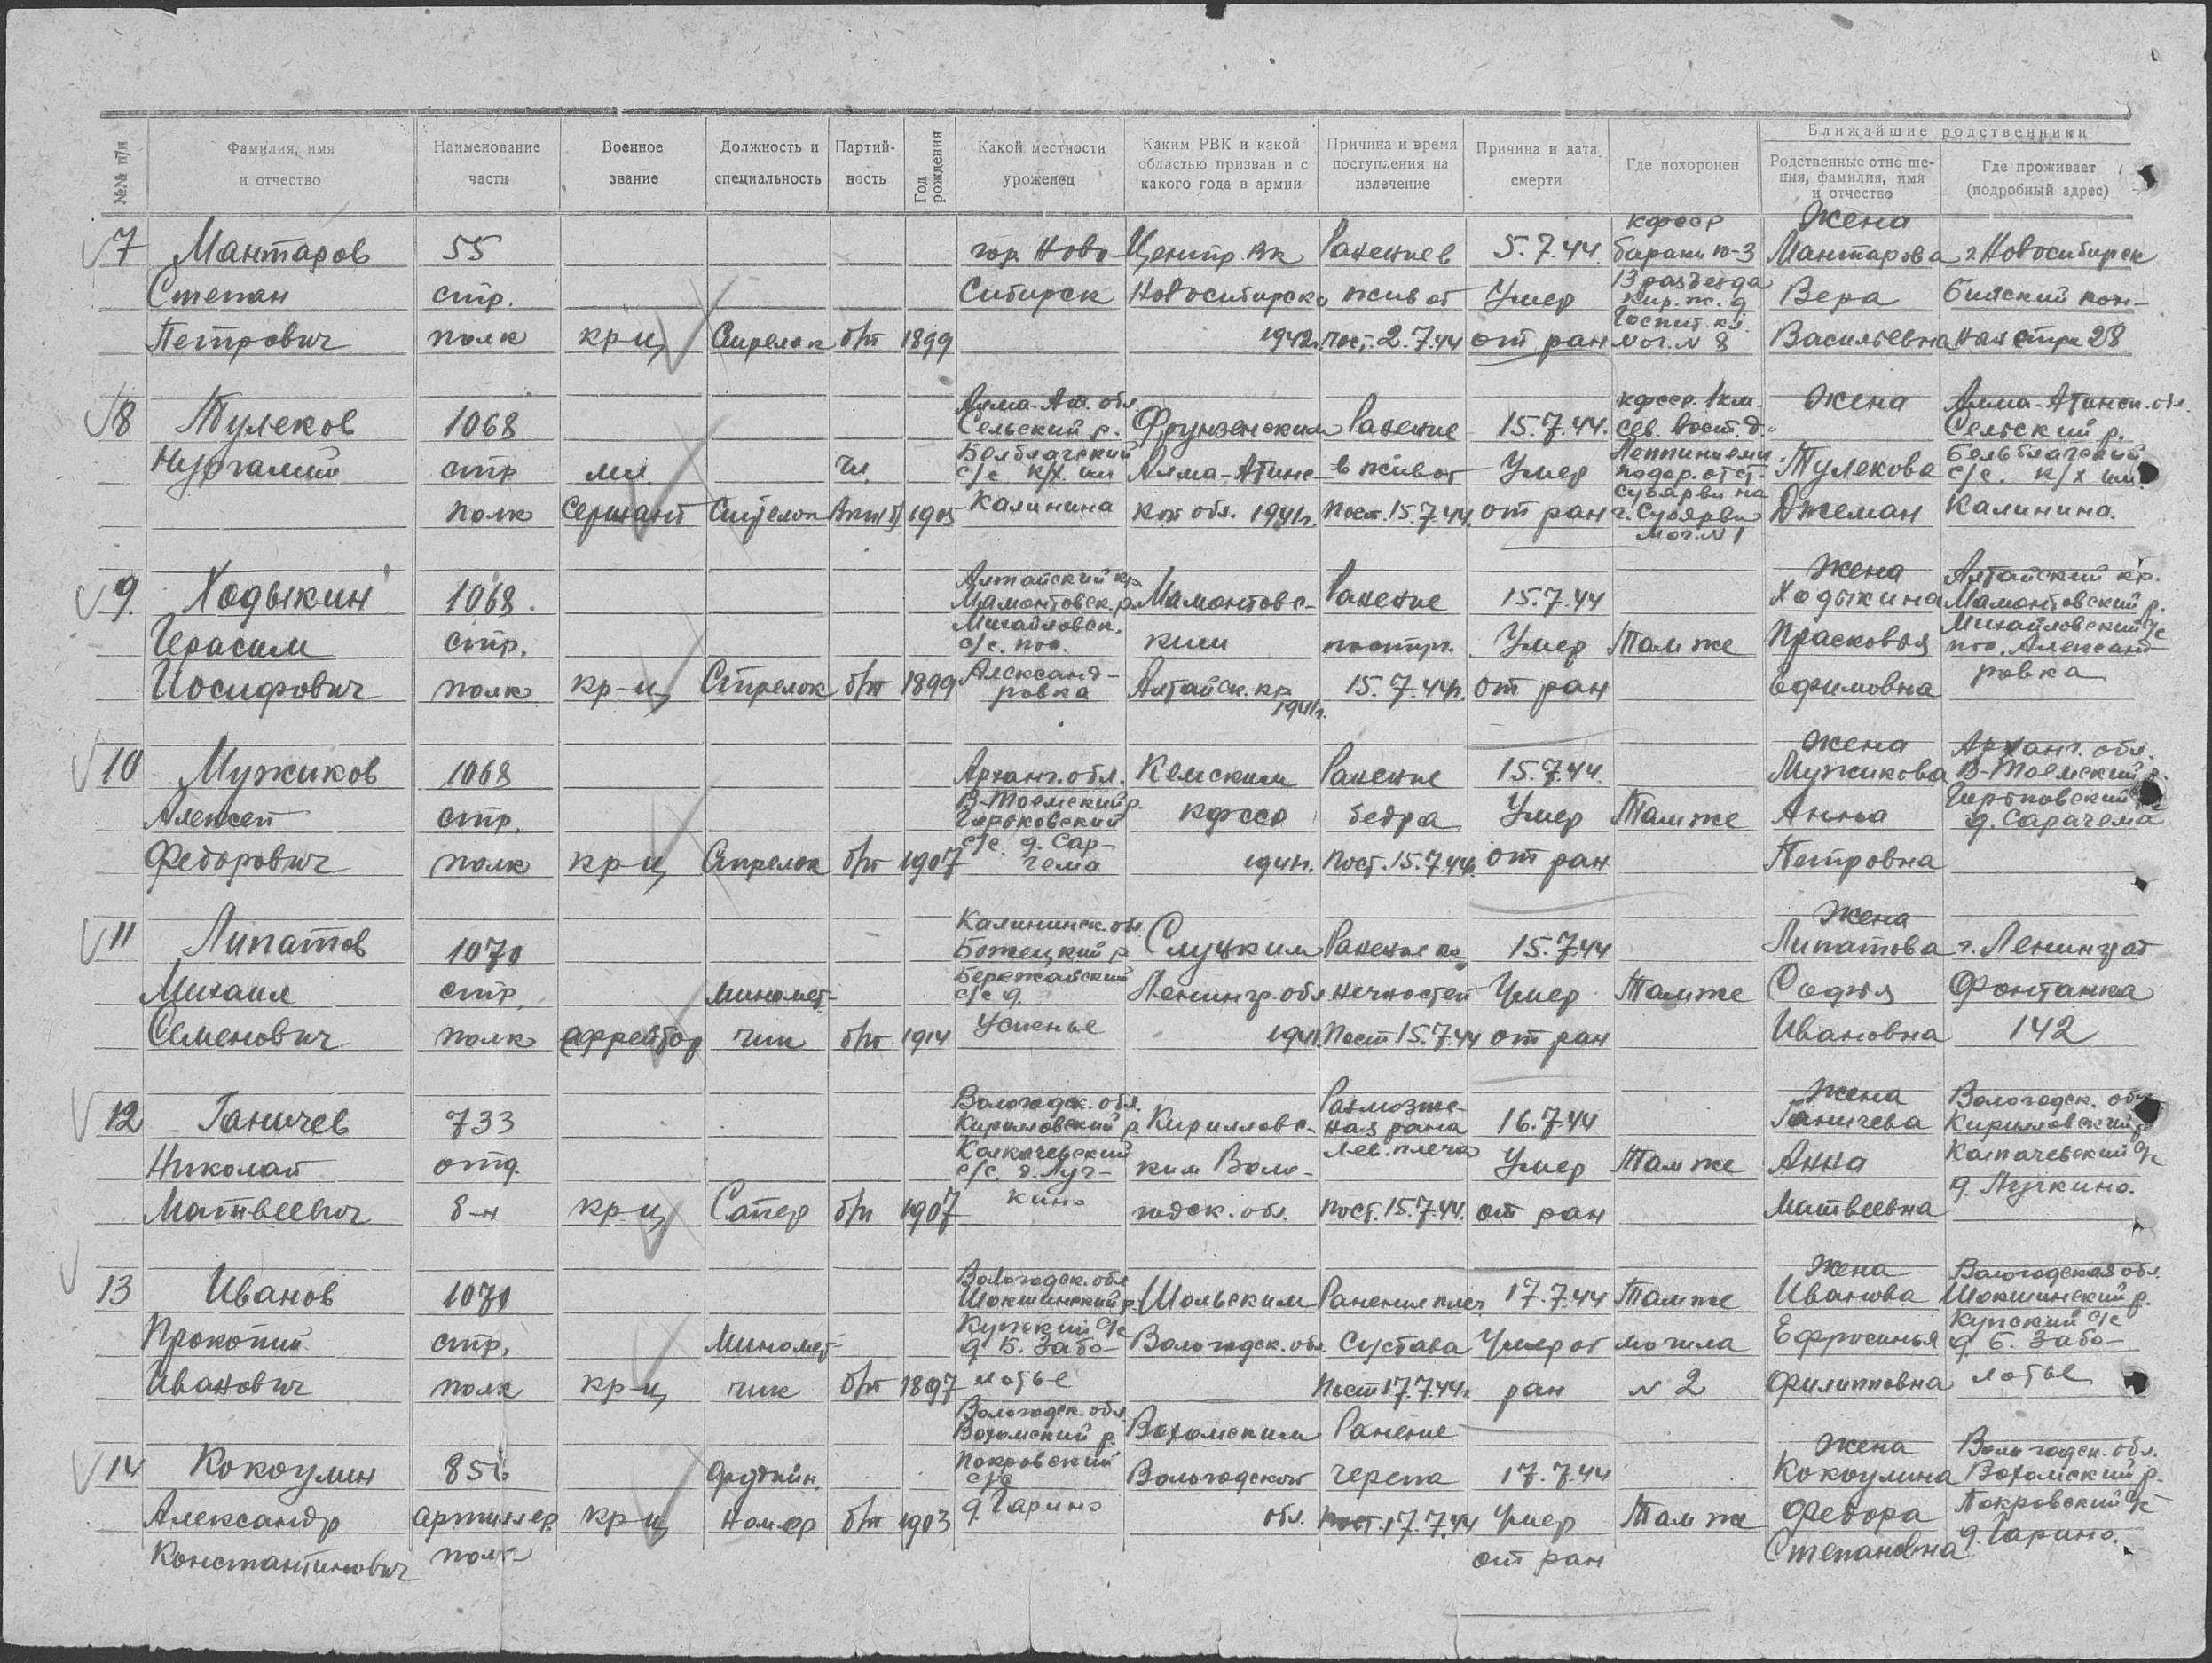 №№ п/п
Фамилия, имя и отчество
Наименование части
Военное звание
Должность и специальность
Партий-ность
Год рождения
Какой местности уроженец
Каким РВК и какой областью призван и с какого года в армии
Причина и время поступления на излечение
Причина и дата смерти
Где похоронен
Ближайшие родственники
Родственные отноше-ния, фамилия, имя и отчество
Где проживает (подробный адрес)
7 Мантаров Степан Петрович
55 стр. полк
кр-ц
Стрелок
б/п
1899
гор. Ново-Сибирск
Центр. Вк Новосибирска 1942г.
Ранение в живот пост. 2.7.44
5.7.44. Умер от ран
КФССР бараки 13 разъезда Кир. ж. д. мог. N 8
Жена Мантарова Вера Васильевна
г. Новосибирск 28
8 Тулеков Нургалий
1068 стр полк
мл. Сержант
Стрелок
чл. ВКП(б)
1905
Алма-Ат. обл. Сельский р. с/с к/х им Калинина
Фрунзенским Алма-Атинс-кой обл. 1941г.
Ранение в живот Пост. 15.7.44.
15.7.44. Умер от ран
КФССР. 1км. сев. вост. д. Леппиниеми г. Суоярви мог. N 1
Жена Тулекова Джеман
Алма-Атинск. обл. Сельский р. с/с. к/х им. Калинина.
9. Ходыкин Герасим Иосифович
1068. стр. полк
кр-ц
Стрелок
б/п
1899
Алтайский кр Мамонтовск. р. Михайловск. с/с. пос. Александ-ровка
Мамонтовс-ким Алтайск. кр 1941г.
Ранение 15.7.44г.
15.7.44 Умер от ран
Там же
Жена Ходыкина Прасковья Ефимовна
Алтайский кр. Мамонтовский р. Михайловский с/с пос. Александ-ровка
10 Мужиков Алексей Федорович
1068 стр. полк
кр-ц
Стрелок
б/п
1907
Арханг. обл. В-Тоемский р. с/с. д. Сар-чема
Кемским КФССР 1941г.
Ранение бедра Пост. 15.7.44г.
15.7.44. Умер от ран
Там же
Жена Мужикова Анна Петровна
Арханг. обл. В-Тоемский р. д. Сарачема
11 Липатов Михаил Семенович
1070 стр. полк
ефрейтор
миномет-чик
б/п
1914
Калининск. обл Бежецкий р Бережайский с/с д. Усиенье
Слуцким Ленингр. обл 1941.
Ранение ко нечностей Пост 15.7.44
15.7.44 Умер от ран
Там же
Жена Липатова Софья Ивановна
г. Ленинград Фонтанка 142
12 Ганичев Николай Матвеевич
733 отд. б-н
кр-ц
Сапер
б/п
1907
Вологодск. обл. Кирилловский р. Колкачевский с/с. д. Луч-кино
Кирилловс-ким Воло-годск. обл.
Размозже-ная рана лев. плеча Пост. 15.7.44.
16.7.44 Умер от ран
Там же
Жена Ганичева Анна Матвеевна
Вологодск. обл Кирилловский р Колкачевский с/с д. Лучкино.
13 Иванов Прокопий Иванович
1070 стр. полк
кр-ц
Миномет-чик
б/п
1897
Вологодск. обл Шокшинский р. Купский с/с д Б. Забо-лотье
Шольским Вологодск. обл.
Ранения плеч. сустава Пост 17.7.44г.
17.7.44 Умер от ран
Там же могила N 2
Жена Иванова Ефросинья Филипповна
Вологодская обл. Шокшинский р. Купский с/с д. Б. Забо-лотье
14 Кокоулин Александр Константинович
856 артиллер. полк
кр-ц
Орудийн. номер
б/п
1903
Вологодск. обл. Вохомский р. Покровский с/с д Гарино
Вохомским Вологодской обл.
Ранение черепа Пост. 17.7.44
17.7.44 Умер от ран
Там же
Жена Кокоулина Федора Степановна
Вологодск. обл. Вохомский р. Покровский с/с д. Гарино.